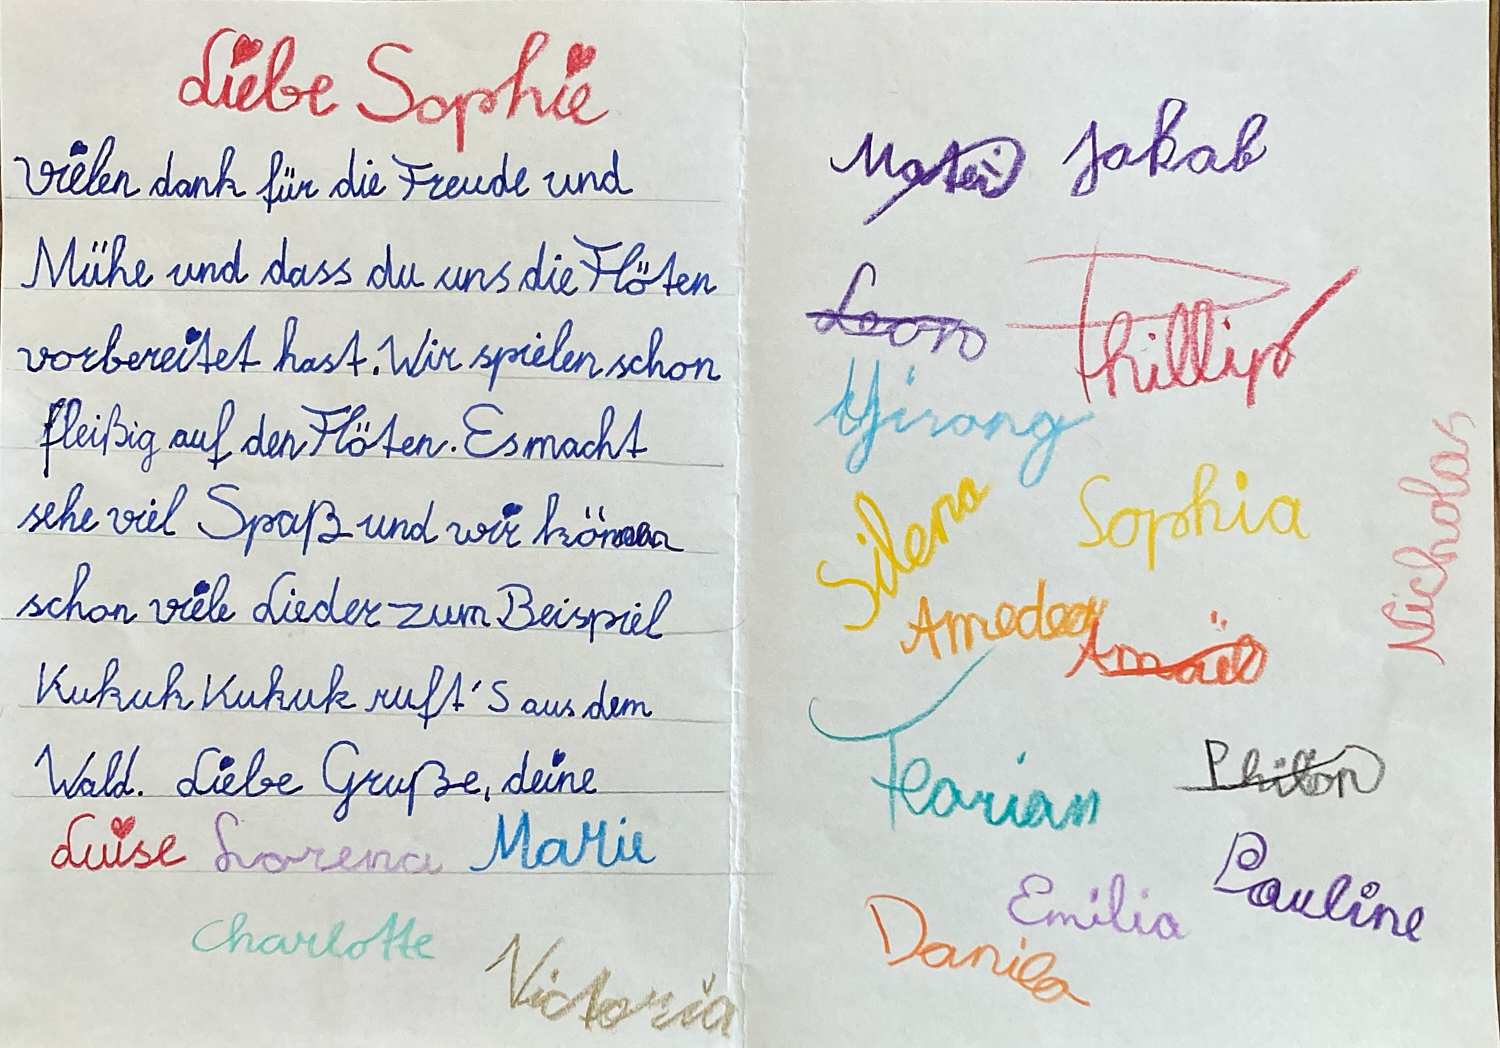 Liebe Sophie
vielen dank für die Freude und
Mühe und dass du uns die Flöten
vorbereitet hast. Wir spielen schon
fleißig auf den Flöten. Es macht
sehe viel Spaß und wir können
schon viele Lieder zum Beispiel
Kukuk Kukuk ruft's aus dem
Wald. Liebe Gruße, deine
Luise Lorena Marie
Charlotte
Victoria
Matei Jakab
Leon Phillip
Yirong
Silena Sophia
Nicholas
Amedea Amäel
Florian
Pauline
Emilia
Danila